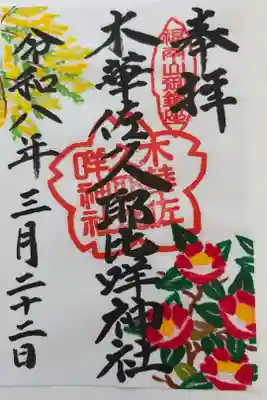 奉拝
木華佐久耶比咩神社
令和八年三月二十二日
木華佐
咩神社